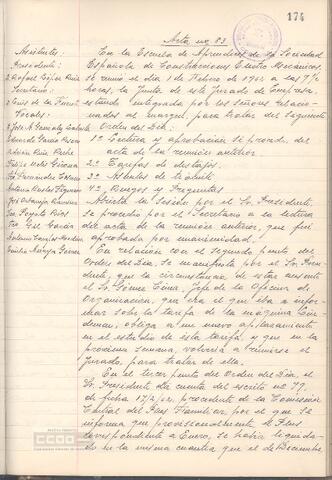 174
Acta nº 83
Asistentes:
Presidente:
D. Rafael López Ruiz
Secretario:
D. Luis de la
Vocales:
D. José A. Gonzalez
Eduardo García
Adrián Ruiz
Felix Girona
Fernández
Antonio
José
Fco. Poyato Ríos
Fco. Gel García
Antonio
Emilio
En la Escuela de Aprendices de la Sociedad
Española de Construcciones Electro Mecánicas
se reunió el día 1 de Febrero de 1962 a las 7½
horas, la Junta de este Jurado de Empresa,
estando integrada por los señores relacio-
nados al margen, para tratar del siguiente
Orden del Día:
1º Lectura y aprobación si procede, del
acta de la reunión anterior
2º Tarifas de destajos
3º Asuntos de trámite
4º Ruegos y Preguntas
Abierta la Sesión por el Sr. Presidente,
se procedió por el Secretario a la lectura
del acta de la reunión anterior, que fué
aprobada por unanimidad.
En relación con el segundo punto del
orden del Día, se manifiesta por el Sr. Presi-
dente, que la circunstancia de estar ausente
el Sr. Gómez, Jefe de la Oficina de
Organización, que era el que iba a infor-
mar sobre la tarifa de la máquina
obliga a un nuevo aplazamiento
en el estudio de esta tarifa, y que en la
próxima semana, volverá a reunirse el
Jurado, para tratar de ella.
En el tercer punto del Orden del Día, el
Sr. Presidente da cuenta del escrito nº 79
de fecha de la Comisión
Central del Plus Familiar, por el que se
informa que provisionalmente el Plus
correspondiente a Enero, se habrá liquida-
do en la misma cuantía que el de Diciembre